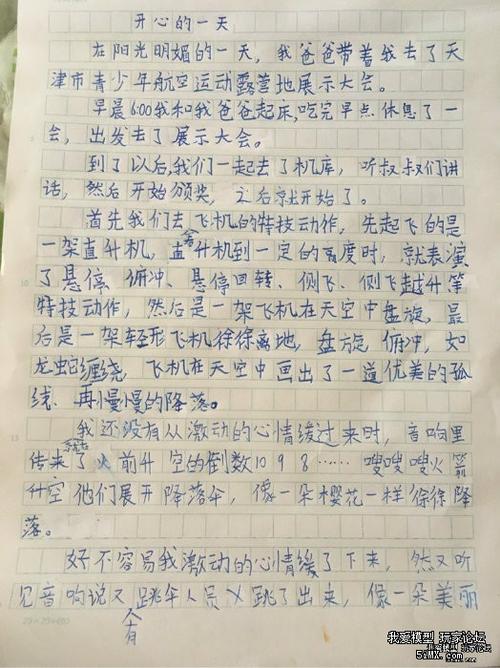 开心的一天
在阳光明媚的一天，我爸爸带着我去了天
津市青少年航空运动露营地展示大会。
早晨6:00我和我爸爸起床，吃完早点休息了一
会，出发去了展示大会。
到了以后，我们一起去了机库，听叔叔们讲
话，然后开始颁奖，之后就开始了。
首先我们去看飞机的特技动作，先起飞的是
一架直升机，直升机到一定的高度时，就表演
了悬停、俯冲、悬停回转、侧飞、侧飞越升等
特技动作，然后是一架飞机在天空中盘旋，最
后是一架轻形飞机徐徐离地，盘旋俯冲，如
龙蛇缠绕，飞机在天空中画出了一道优美的弧
线、再慢慢的降落。
我还没有从激动的心情缓过来时，音响里
传来了火箭升空的倒数10 9 8……嗖嗖嗖火箭
升空他们展开降落伞，像一朵樱花一样徐徐降
落。
好不容易我激动的心情缓了下来，然又听
见音响说又有跳伞人员跳了出来，像一朵美丽
我爱模型 玩家论坛
5iMX.com